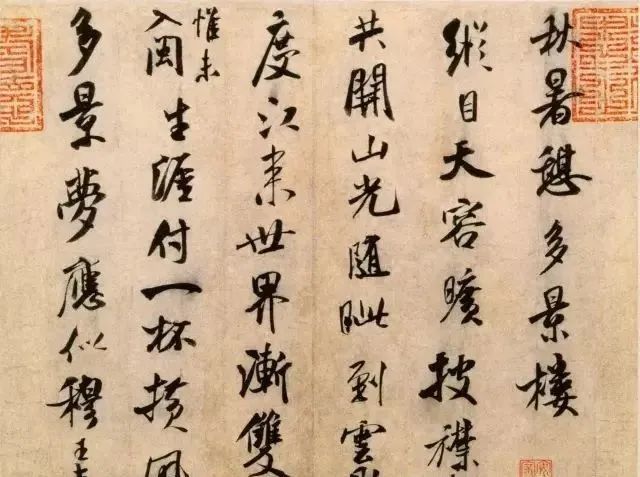 秋暑憩多景樓
縱目天容曠披襟
共開山光隨眦到雲
度江來世界漸雙
入閩生涯付一杯橫風
惟未
多景夢應似穆王